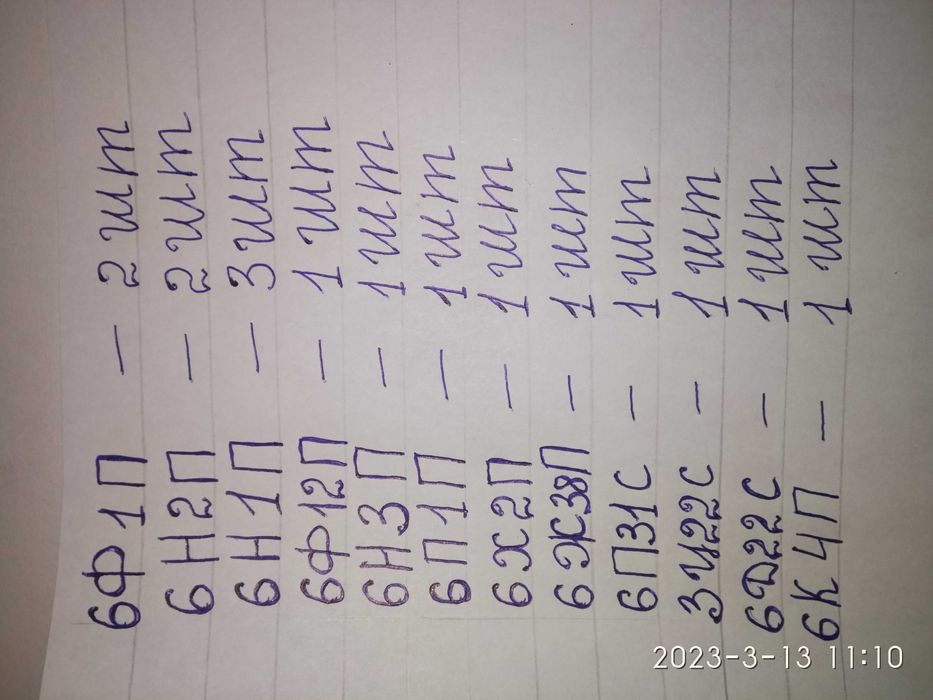 6Ф1П – 2 шт
6Н2П – 2 шт
6Н1П – 3 шт
6Ф12П – 1 шт
6Н3П – 1 шт
6П1П – 1 шт
6Х2П – 1 шт
6Ж38П – 1 шт
6П31С – 1 шт
3Ц22С – 1 шт
6Д22С – 1 шт
6К4П – 1 шт
2023-3-13 11:10